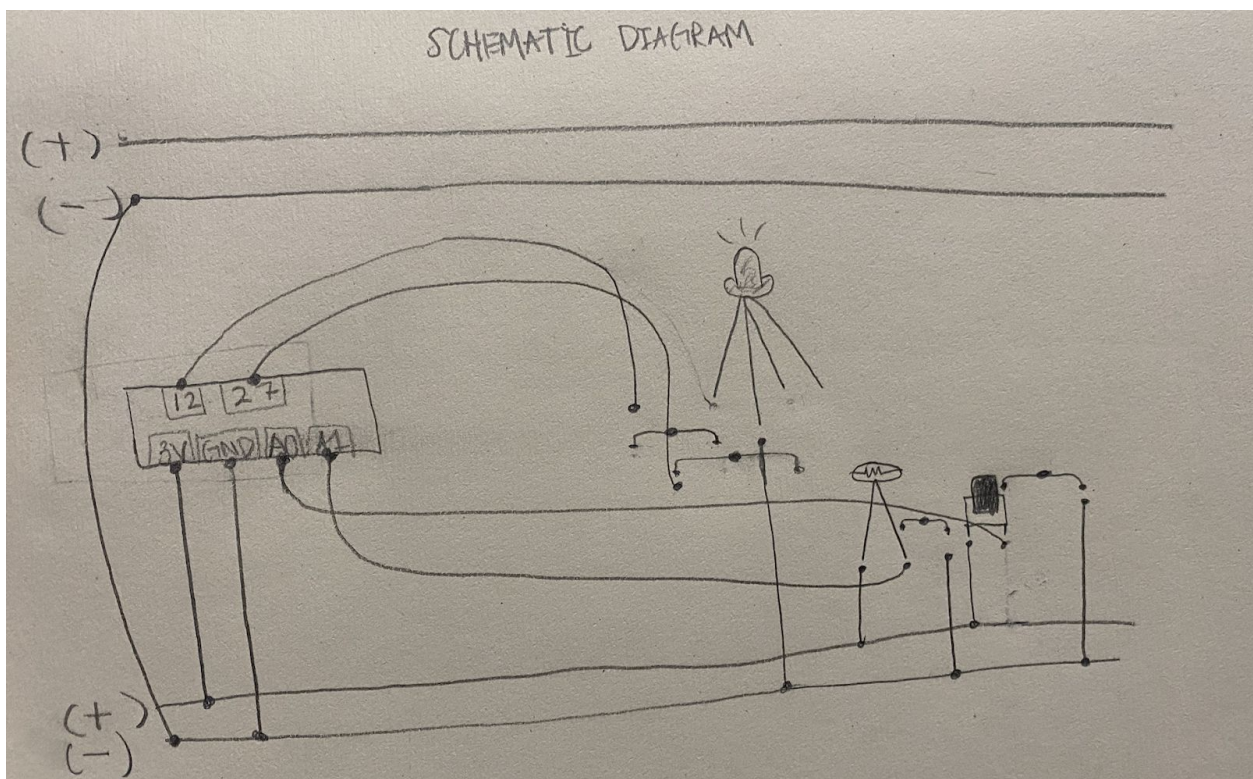 SCHEMATIC DIAGRAM
(+)
(-)
12 27
3V GND A0 A1
(+)
(-)